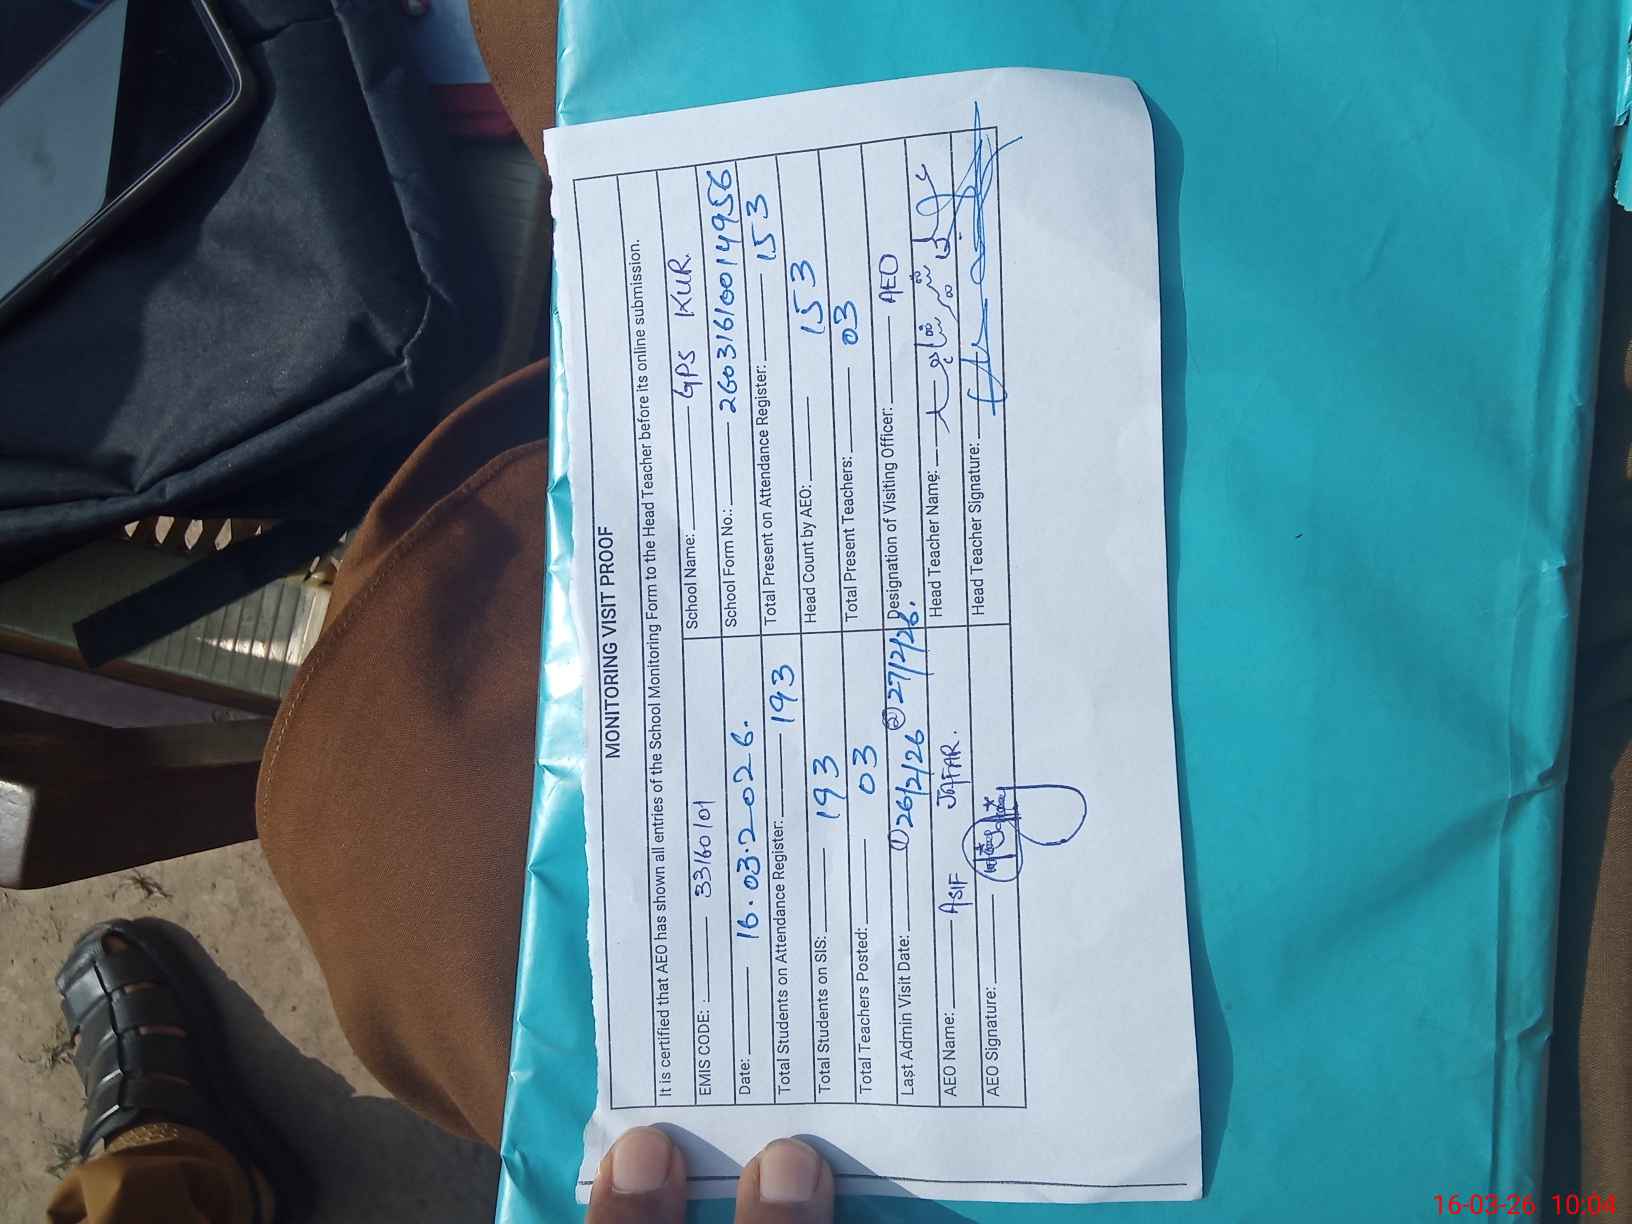 MONITORING VISIT PROOF
It is certified that AEO has shown all entries of the School Monitoring Form to the Head Teacher before its online submission.
EMIS CODE: : 33160101 School Name: GPS KUR.
Date: 16.03.2026. School Form No.: 26031610014956
Total Students on Attendance Register: 193 Total Present on Attendance Register: 153
Total Students on SIS: 193 Head Count by AEO: 153
Total Teachers Posted: 03 Total Present Teachers: 03
Last Admin Visit Date: ① 26/2/26 ② 27/2/26. Designation of Visiting Officer: AEO
AEO Name: ASIF JAFFAR. Head Teacher Name:
AEO Signature: Head Teacher Signature:
16-03-26 10:04